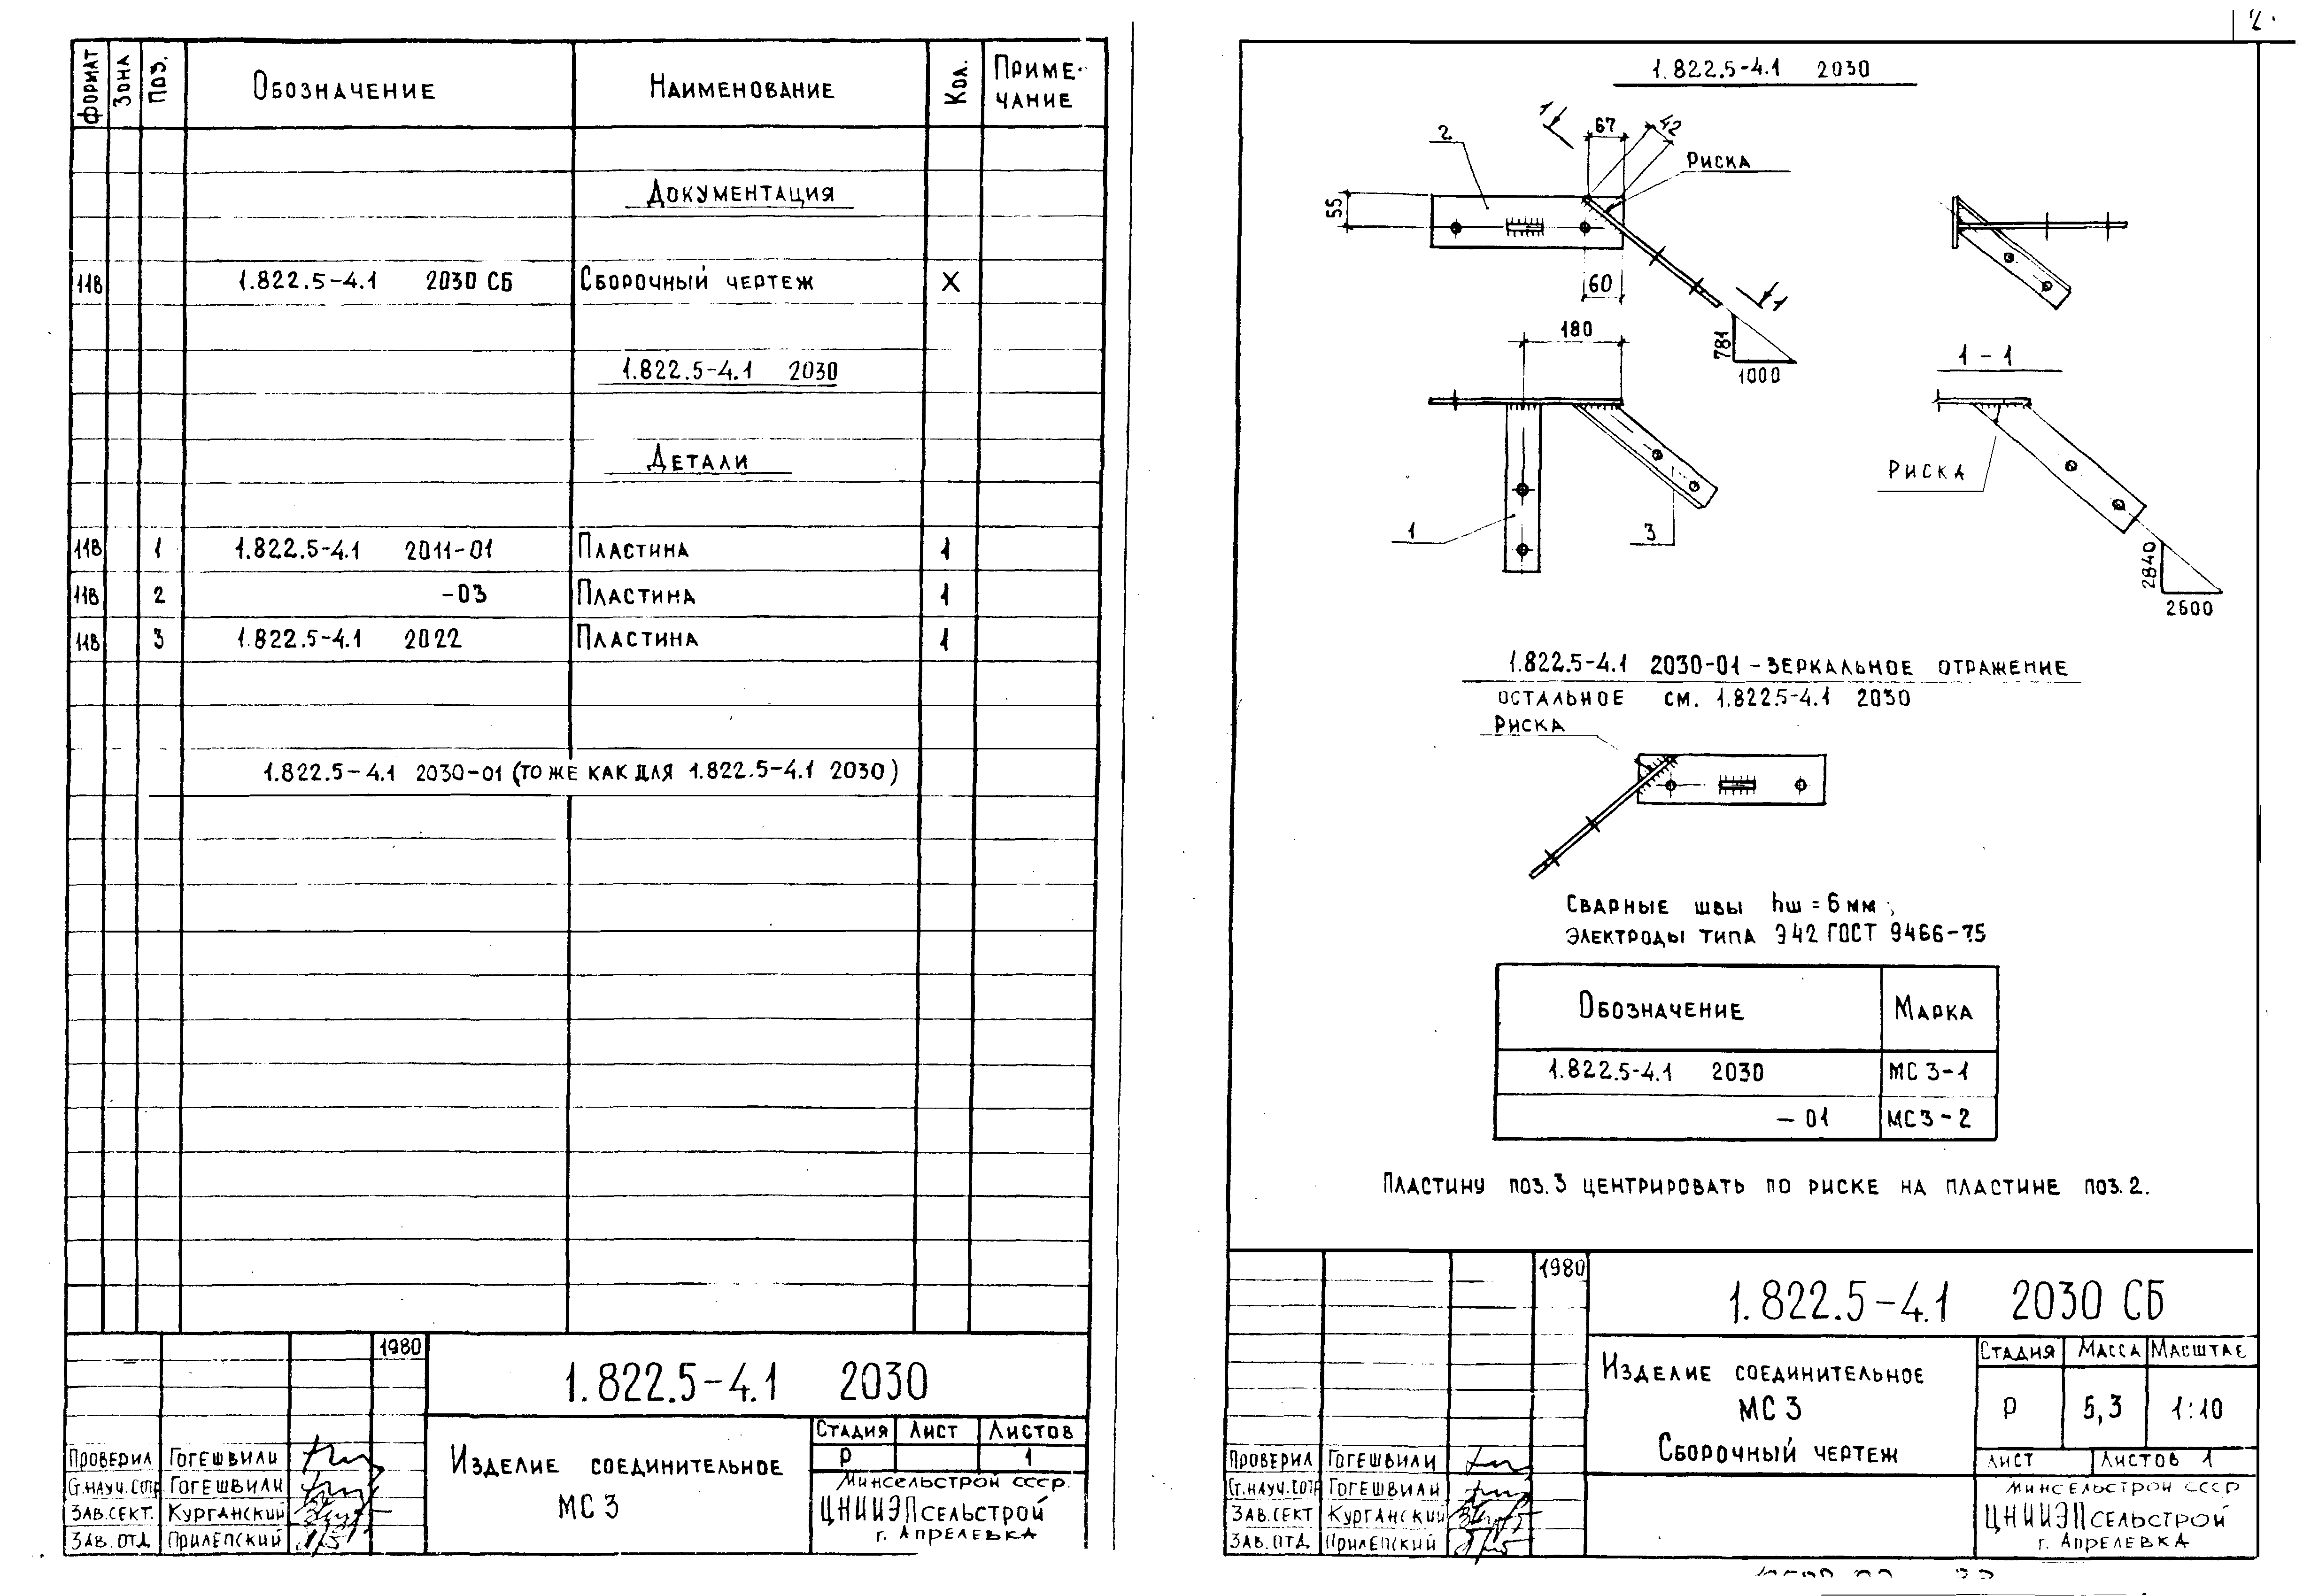 ФОРМАТ ЗОНА ПОЗ. ОБОЗНАЧЕНИЕ НАИМЕНОВАНИЕ КОЛ. ПРИМЕ-
ЧАНИЕ
ДОКУМЕНТАЦИЯ
11В 1.822.5-4.1 2030 СБ СБОРОЧНЫЙ ЧЕРТЕЖ X
1.822.5-4.1 2030
ДЕТАЛИ
11В 1 1.822.5-4.1 2011-01 ПЛАСТИНА 1
11В 2 -03 ПЛАСТИНА 1
11В 3 1.822.5-4.1 2022 ПЛАСТИНА 1
1.822.5-4.1 2030-01 (ТО ЖЕ КАК ДЛЯ 1.822.5-4.1 2030)
1980
1.822.5-4.1 2030
ИЗДЕЛИЕ СОЕДИНИТЕЛЬНОЕ
МС 3
СТАДИЯ ЛИСТ ЛИСТОВ
Р 1
МИНСЕЛЬСТРОЙ СССР
ЦНИИЭПСЕЛЬСТРОЙ
Г. АПРЕЛЕВКА
ПРОВЕРИЛ ГОГЕШВИЛИ
СТ.НАУЧ.СОТР ГОГЕШВИЛИ
ЗАВ.СЕКТ. КУРГАНСКИЙ
ЗАВ.ОТД ПРИЛЕПСКИЙ
1.822.5-4.1 2030
1
67
42
2
РИСКА
55
60
1
180
781
1000
1
3
1-1
РИСКА
2840
2600
1.822.5-4.1 2030-01-ЗЕРКАЛЬНОЕ ОТРАЖЕНИЕ
ОСТАЛЬНОЕ СМ. 1.822.5-4.1 2030
РИСКА
СВАРНЫЕ ШВЫ hш = 6 мм;
ЭЛЕКТРОДЫ ТИПА Э42 ГОСТ 9466-75
ОБОЗНАЧЕНИЕ МАРКА
1.822.5-4.1 2030 МС 3-1
-01 МС3-2
ПЛАСТИНУ ПОЗ.3 ЦЕНТРИРОВАТЬ ПО РИСКЕ НА ПЛАСТИНЕ ПОЗ.2.
1980
1.822.5-4.1 2030 СБ
ИЗДЕЛИЕ СОЕДИНИТЕЛЬНОЕ
МС 3
СБОРОЧНЫЙ ЧЕРТЕЖ
СТАДИЯ МАССА МАСШТАБ
Р 5,3 1:10
ЛИСТ ЛИСТОВ 1
МИНСЕЛЬСТРОЙ СССР
ЦНИИЭПСЕЛЬСТРОЙ
Г. АПРЕЛЕВКА
ПРОВЕРИЛ ГОГЕШВИЛИ
СТ.НАУЧ.СОТР ГОГЕШВИЛИ
ЗАВ.СЕКТ КУРГАНСКИЙ
ЗАВ.ОТД. ПРИЛЕПСКИЙ